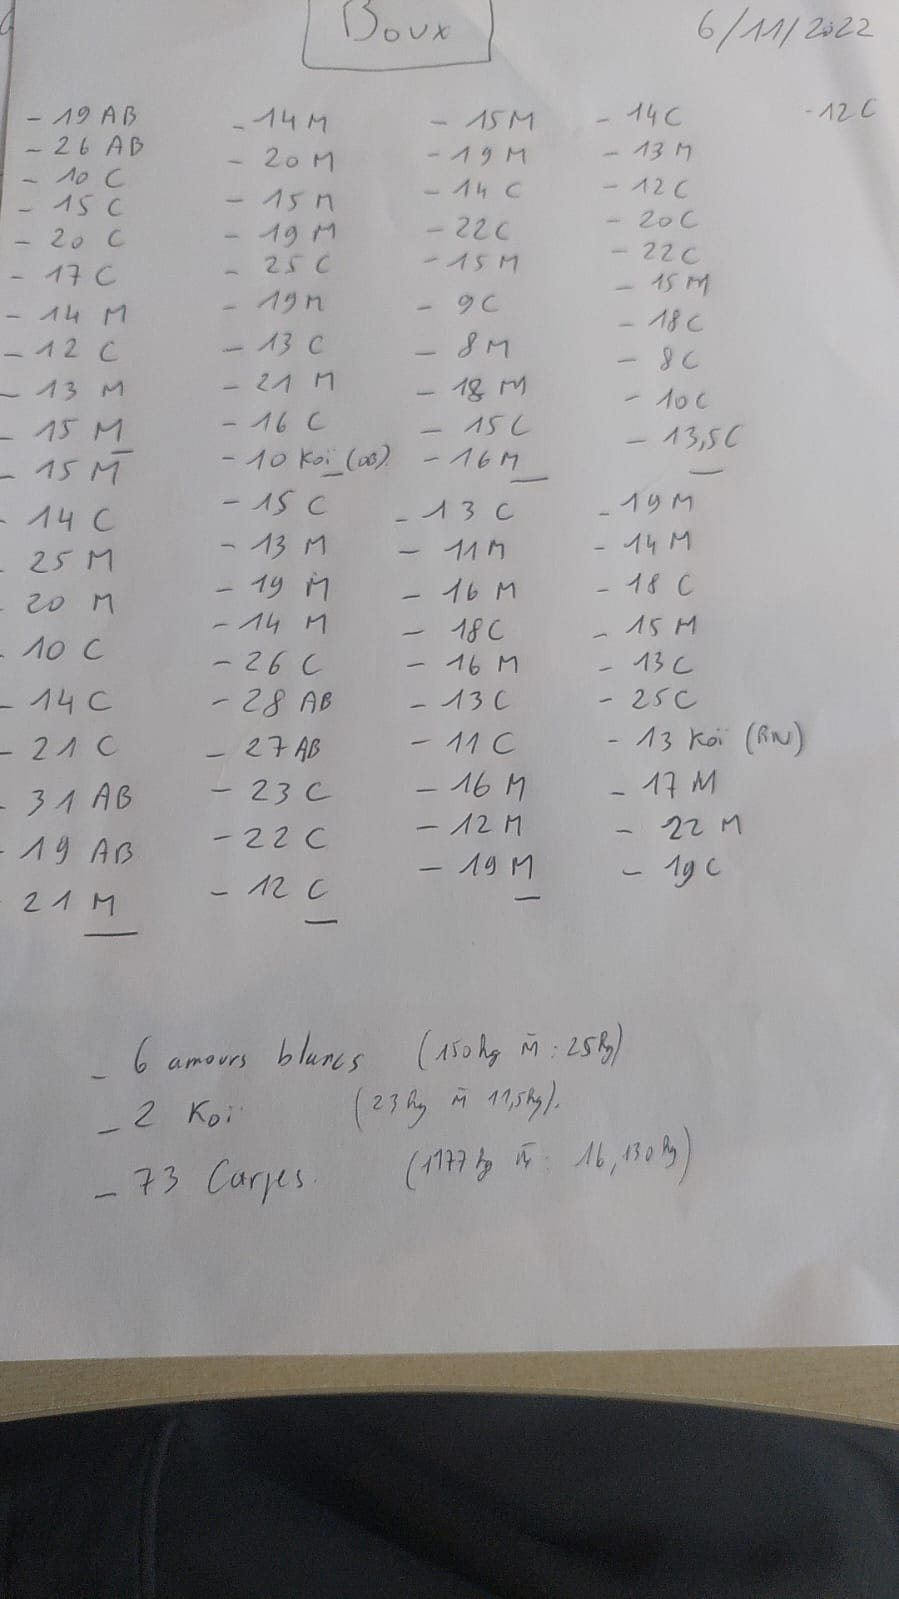 Boux
6/11/2022
- 19 AB
- 26 AB
- 10 C
- 15 C
- 20 C
- 17 C
- 14 M
- 12 C
- 13 M
- 15 M
- 15 M
- 14 C
- 25 M
- 20 M
- 10 C
- 14 C
- 21 C
- 31 AB
- 19 AB
21 M
- 14 M
- 20 M
- 15 M
- 19 M
- 25 C
- 19 M
- 13 C
- 21 M
- 16 C
- 10 Koï
- 15 C
- 13 M
- 19 M
- 14 M
- 26 C
- 28 AB
- 27 AB
- 23 C
- 22 C
- 12 C
- 15 M
- 19 M
- 14 C
- 22 C
- 15 M
- 9 C
- 8 M
- 18 M
- 15 C
- 16 M
- 13 C
- 11 M
- 16 M
- 18 C
- 16 M
- 13 C
- 11 C
- 16 M
- 12 M
- 19 M
- 14 C
- 13 M
- 12 C
- 20 C
- 22 C
- 15 M
- 18 C
- 8 C
- 10 C
- 13,5 C
- 19 M
- 14 M
- 18 C
- 15 M
- 13 C
- 25 C
- 13 Koï (RN)
- 17 M
- 22 M
- 19 C
- 12 C
- 6 amours blancs (150kg m̄ : 25kg)
- 2 Koï (23kg m̄ 11,5kg).
- 73 Carpes. (1177kg m̄ : 16,130kg)